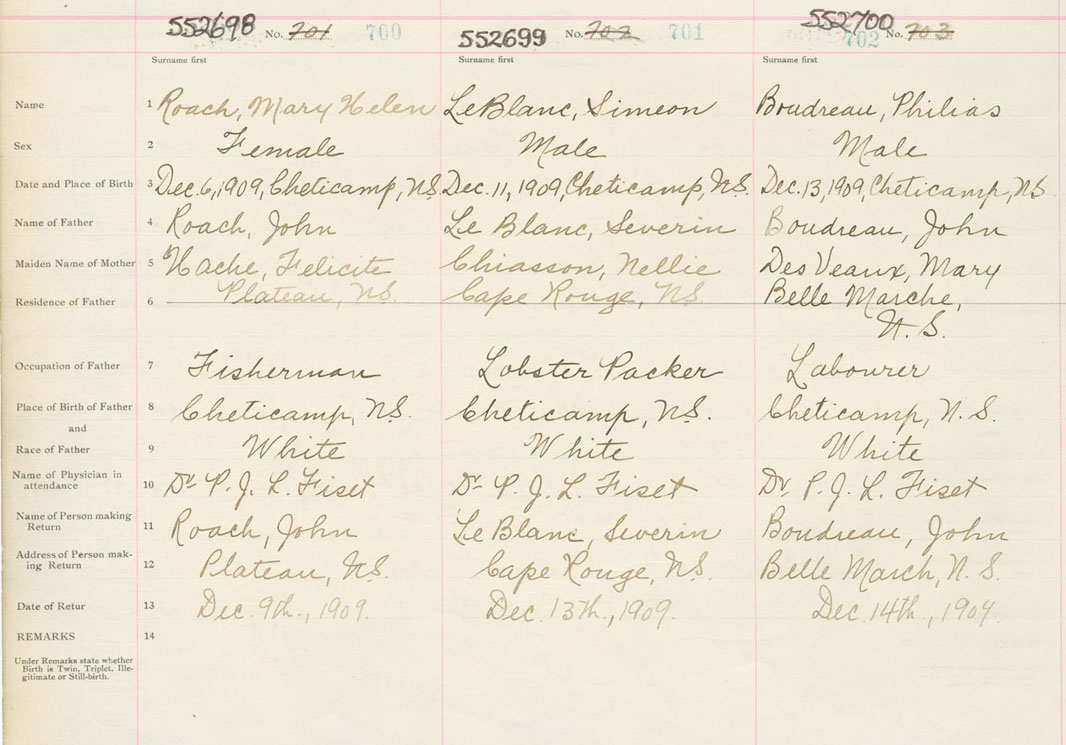 552698 No. 701 700 552699 No. 702 701 552700 702 No. 703
Surname first Surname first Surname first
Name 1 Roach, Mary Helen LeBlanc, Simeon Boudreau, Philias
Sex 2 Female Male Male
Date and Place of Birth 3 Dec. 6, 1909, Cheticamp, N.S. Dec. 11, 1909, Cheticamp, N.S. Dec. 13, 1909, Cheticamp, N.S.
Name of Father 4 Roach, John Le Blanc, Severin Boudreau, John
Maiden Name of Mother 5 Hache, Felicite Chiasson, Nellie DesVeaux, Mary
Residence of Father 6 Plateau, N.S. Cape Rouge, N.S. Belle Marche,
N.S.
Occupation of Father 7 Fisherman Lobster Packer Labourer
Place of Birth of Father 8 Cheticamp, N.S. Cheticamp, N.S. Cheticamp, N.S.
and
Race of Father 9 White White White
Name of Physician in
attendance 10 Dr P. J. L. Fiset Dr P. J. L. Fiset Dr P. J. L. Fiset
Name of Person making
Return 11 Roach, John Le Blanc, Severin Boudreau, John
Address of Person mak-
ing Return 12 Plateau, N.S. Cape Rouge, N.S. Belle March, N.S.
Date of Retur 13 Dec. 9th., 1909. Dec. 13th., 1909. Dec. 14th., 1909.
REMARKS 14
Under Remarks state whether
Birth is Twin, Triplet, Ille-
gitimate or Still-birth.